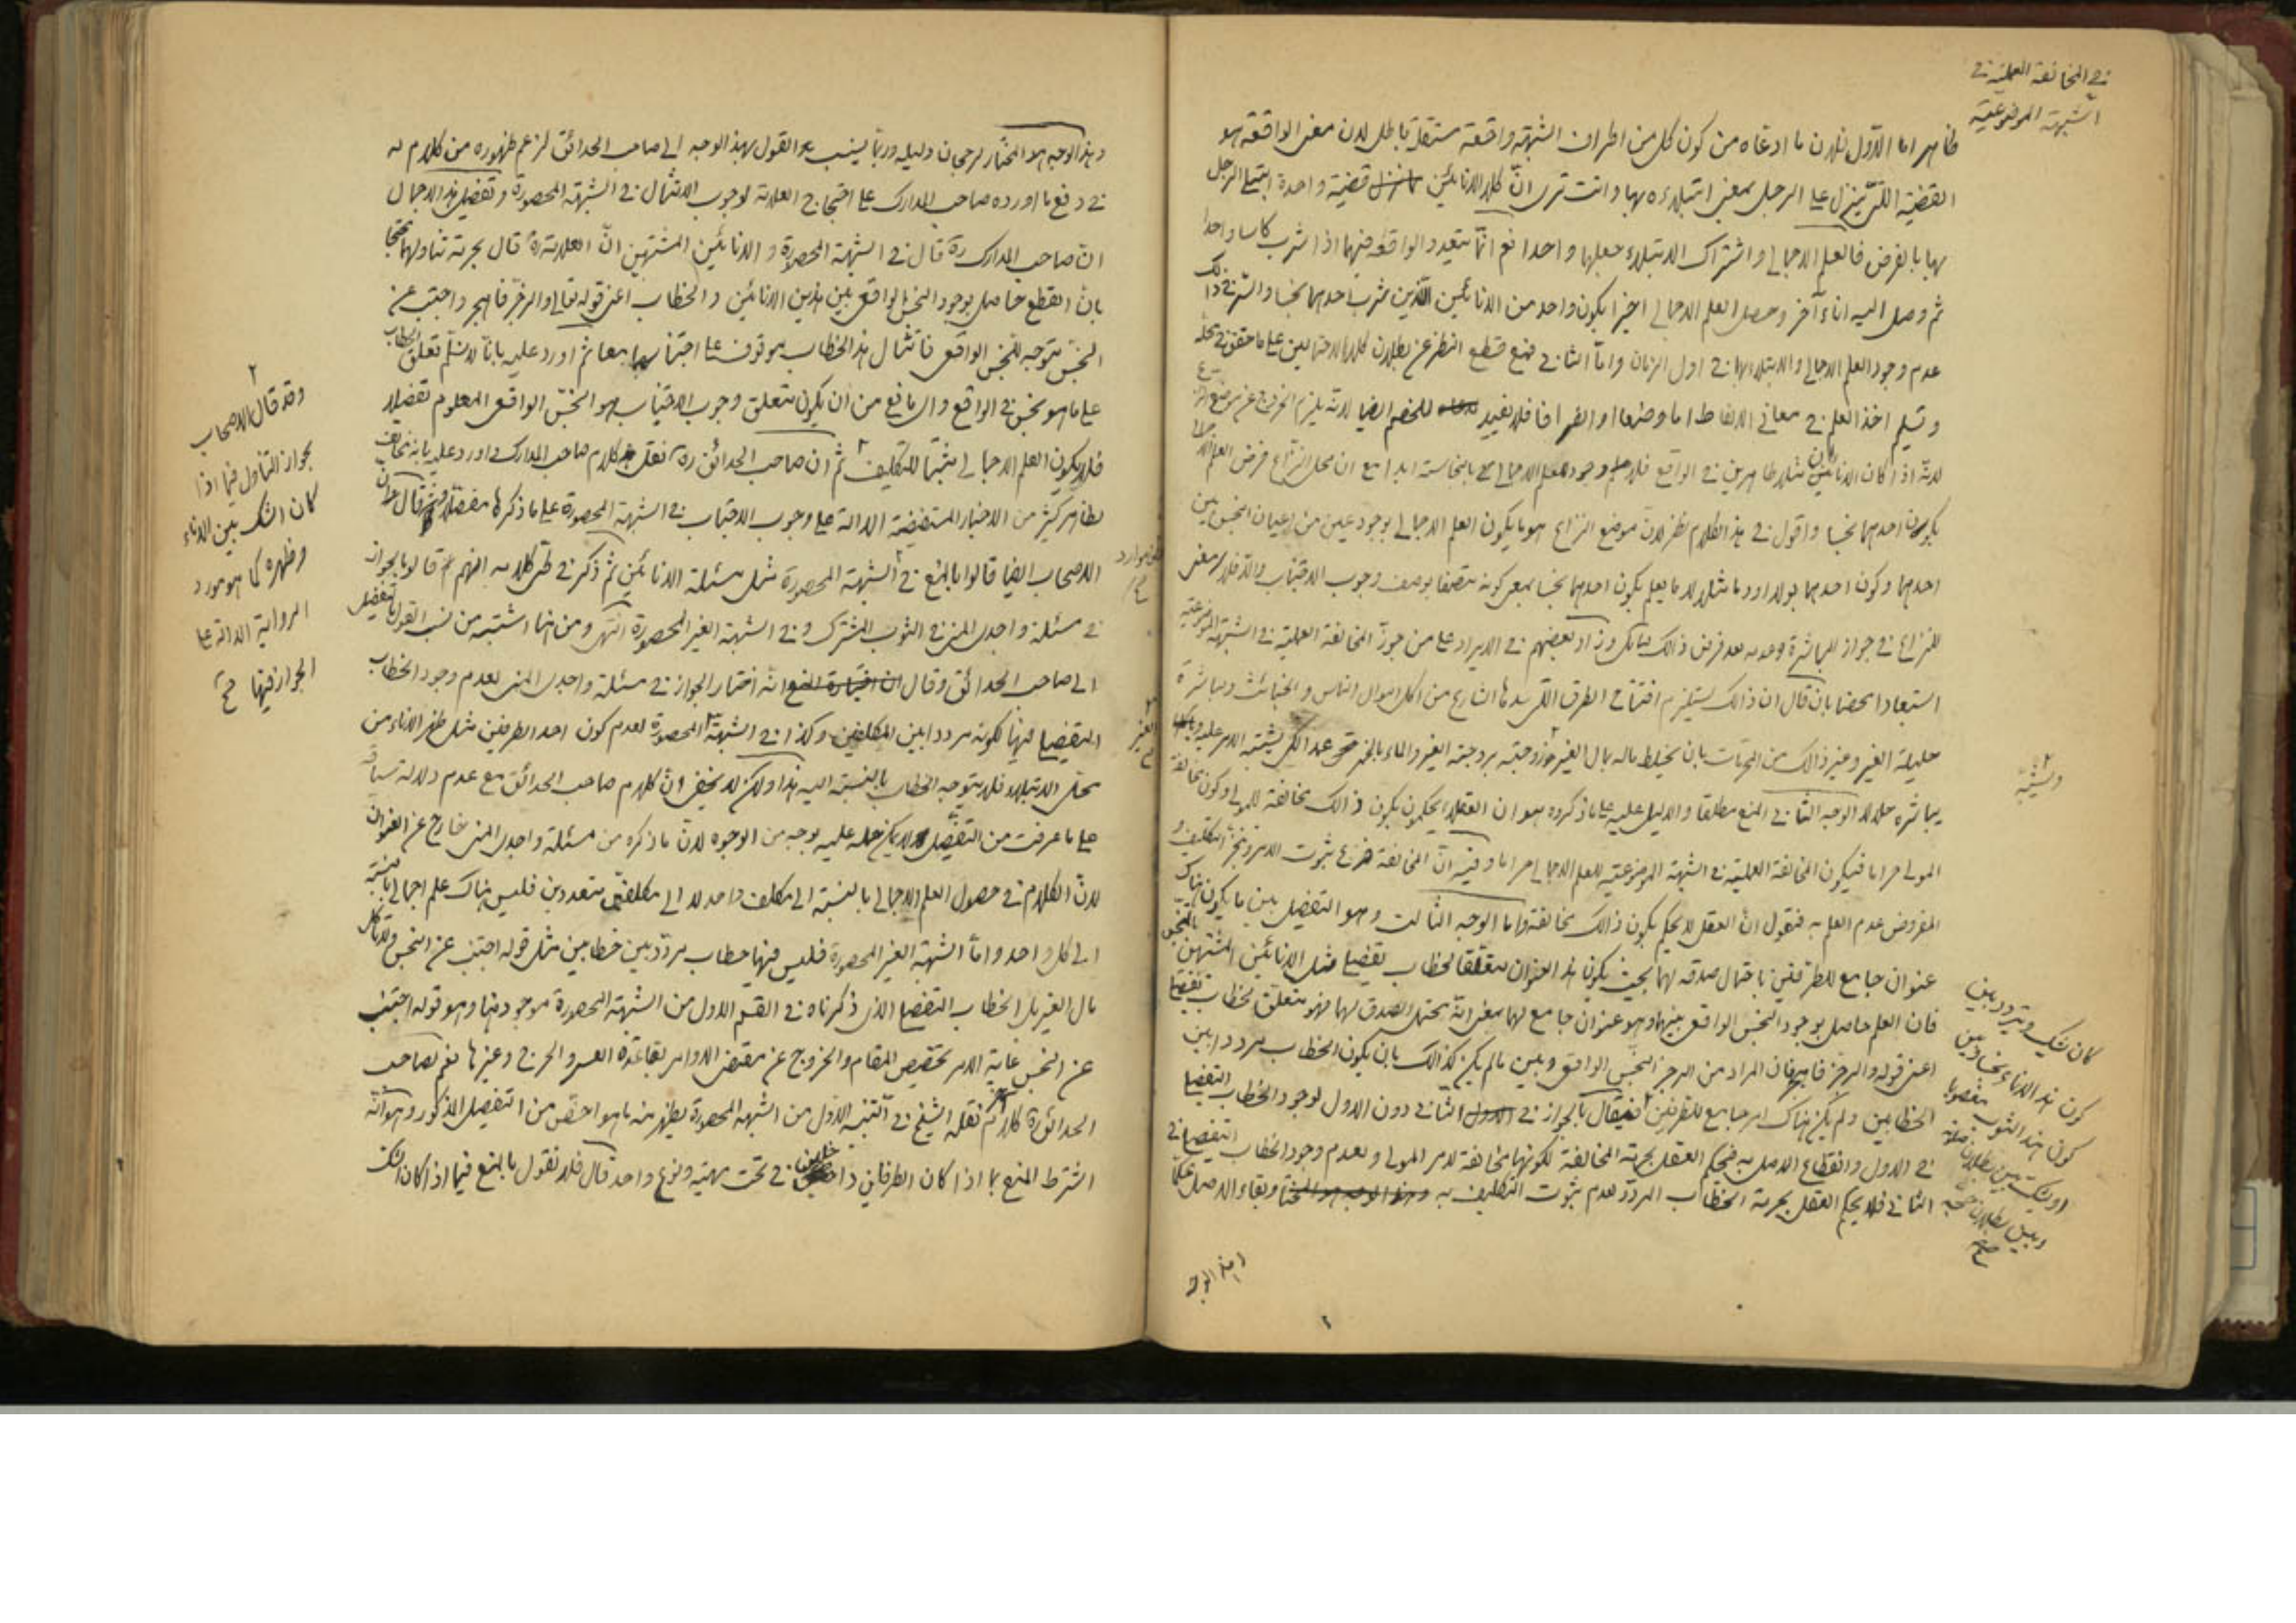 في المخالفة العملية في
الشبهة الموضوعية
ظاهر اما الاوّل فلان ما ادعاه من كون كل من اطراف الشبهة واقعة مستقلة باطل لان معنى الواقعة هو
القضية التي ينزل على الرجل بمعنى ابتلاءه بها وانت ترى انّ كلا الانائين قضية واحدة ابتلى الرجل
بها بالفرض فالعلم الاجمالي واشتراك الابتلاء جعلها واحدا نعم انّما يتعدد الواقعة فيهما اذا شرب كاسا واحدا
ثم وصل اليه اناء آخر وحصل العلم الاجمالي اخيرا بكون واحد من الانائين الذين شرب احدهما نجسا والسر في ذلك
عدم وجود العلم الاجمالي والابتلاء بها في اول الزمان وامّا الثاني فمع قطع النظر عن بطلان كلا الاحتمالين على ما حقق في محله
وتسليم اخذ العلم في معاني الالفاظ اما وضعا او انصرافا فلا يفيد للخصم ايضا لانه يلزم الخروج عن موضع النزاع
لانّه اذا كان الانائان مثلا طاهرين في الواقع فلا وجود للعلم الاجمالي بالنجاسة ابدا مع ان محل النزاع فرض العلم الاجمالي
بكون احدهما نجسا واقول في هذا الكلام نظر لان موضع النزاع هو ما يكون العلم الاجمالي بوجود عين من اعيان النجس بين
احدهما وكون احدهما بولا او دما مثلا لا ما يعلم بكون احدهما نجسا بمعنى كونه متصفا بوصف وجوب الاجتناب والا فلا معنى
للنزاع في جواز المباشرة وعدمه بعد فرض ذلك هناك وزاد بعضهم في الايراد على من جوّز المخالفة العملية في الشبهة الموضوعية
استبعادا محضا بان قال ان ذلك يستلزم افتتاح الطرق التي سدها الشارع من اكل اموال الناس والخبائث ومباشرة
حليلة الغير وغير ذلك من المحرمات بان يخلط ماله بمال الغير وزوجته بزوجة الغير والماء بالخمر عمدا لكي يشتبه الامر عليه
يباشره حلالا الوجه الثاني المنع مطلقا والدليل عليه على ما ذكروه هو ان العقلاء يحكمون بكون ذلك مخالفة للمولى وكون مخالفة
المولى حراما فيكون المخالفة العملية في الشبهة الموضوعية للعلم الاجمالي حراما وفيه انّ المخالفة فرع ثبوت الامر وتنجز التكليف و
المفروض عدم العلم به فنقول انّ العقل لا يحكم بكون ذلك مخالفة واما الوجه الثالث وهو التفصيل بين ما يكون هناك
عنوان جامع للطرفين باحتمال صدقه لهما بحيث يكون هذا العنوان متعلقا لخطاب تفصيلي مثل الانائين المشتبهين بالنجس
فان العلم حاصل بوجود النجس الواقعي بينهما وهو عنوان جامع لهما بمعنى انّه يحتمل الصدق لهما فهو متعلق لخطاب تفصيلي
اعني قوله والرجز فاهجر فان المراد من الرجز النجس الواقعي وبين ما لم يكن كذلك بان يكون الخطاب مرددا بين
الخطابين ولم يكن هناك امر جامع للطرفين فيقال بالجواز في الثاني دون الاول لوجود الخطاب التفصيلي
في الاول وانقطاع الاصل به فيحكم العقل بحرمة المخالفة لكونها مخالفة لامر المولى ولعدم وجود الخطاب التفصيلي في
الثاني فلا يحكم العقل بحرمة الخطاب المردد لعدم ثبوت التكليف به وبقاء الاصل
كان شك ويتردد بين
كون هذا الاناء نجسا وبين
كون هذا الثوب مغصوبا
او شك بين بطلان صلوته
وبين بطلان حجه
وهذا الوجه
وهذا الوجه هو المختار لرجحان دليله وربما ينسب القول بهذا الوجه الى صاحب الحدائق لزعم ظهوره من كلام له
في دفع ما اورده صاحب المدارك على احتجاج العلامة لوجوب الامتثال في الشبهة المحصورة وتفصيل هذا الاجمال
ان صاحب المدارك ره قال في الشبهة المحصورة والانائين المشتبهين انّ العلامة ره قال بحرمة تناولهما محتجا
بان القطع حاصل بوجود النجس الواقعي بين هذين الانائين والخطاب اعني قوله تعالى والرجز فاهجر واجتنب عن
النجس متوجه للنجس الواقعي فامتثال هذا الخطاب موقوف على اجتنابهما معا ثم اورد عليه بانّا لا نسلّم تعلق الخطاب
على ما هو نجس في الواقع واي مانع من ان يكون متعلق وجوب الاجتناب هو النجس الواقعي المعلوم تفصيلا
فلا يكون العلم الاجمالي مثبتا للتكليف ثم ان صاحب الحدائق ره نقل كلام صاحب المدارك واورد عليه بانه مخالف
لظاهر كثير من الاخبار المستفيضة الدالة على وجوب الاجتناب في الشبهة المحصورة على ما ذكرها مفصلا ثم قال ان
الاصحاب ايضا قالوا بالمنع في الشبهة المحصورة مثل مسئلة الانائين ثم ذكر في طي كلامه انهم قالوا بجواز
في مسئلة واجدى المني في الثوب المشترك وفي الشبهة الغير المحصورة انتهى ومن هنا اشتبه من نسب القول بالتفصيل
الى صاحب الحدائق وقال انه اختار الجواز في مسئلة واجدى المني لعدم وجود الخطاب
التفصيلي فيها لكونه مرددا بين المكلفين وكذا في الشبهة المحصورة لعدم كون احد الطرفين مثل ظهر الاناء من
محل الابتلاء فلا يتوجه الخطاب بالنسبة اليه هذا ولكن لا يخفى ان كلام صاحب الحدائق مع عدم دلالة سياقه
على ما عرفت من التفصيل لا يمكن حمله عليه بوجه من الوجوه لانّ ما ذكره من مسئلة واجدى المني خارج عن العنوان
لانّ الكلام في حصول العلم الاجمالي بالنسبة الى مكلف واحد لا الى مكلفين متعددين فليس هناك علم اجمالي بالنسبة
الى كل واحد وامّا الشبهة الغير المحصورة فليس فيها خطاب مردد بين خطابين مثل قوله اجتنب عن النجس ولا تاكل
مال الغير بل الخطاب التفصيلي الذي ذكرناه في القسم الاول من الشبهة المحصورة موجود هنا وهو قوله اجتنب
عن النجس غاية الامر تخصيص المقام والخروج عن مقتضى الاوامر بقاعدة العسر والحرج وغيرها نعم لصاحب
الحدائق ره كلام نقله الشيخ في التنبيه الاول من الشبهة المحصورة يظهر منه ما هو اخص من التفصيل المذكور وهو انّه
اشترط المنع بما اذا كان الطرفان داخلين في تحت مهية ونوع واحد قال فلا نقول بالمنع فيما اذا كان الشك
وقد قال الاصحاب
بجواز التناول فيما اذا
كان الشك بين الاناء
وظهره كما هو مورد
الرواية الدالة على
الجواز فيها صح